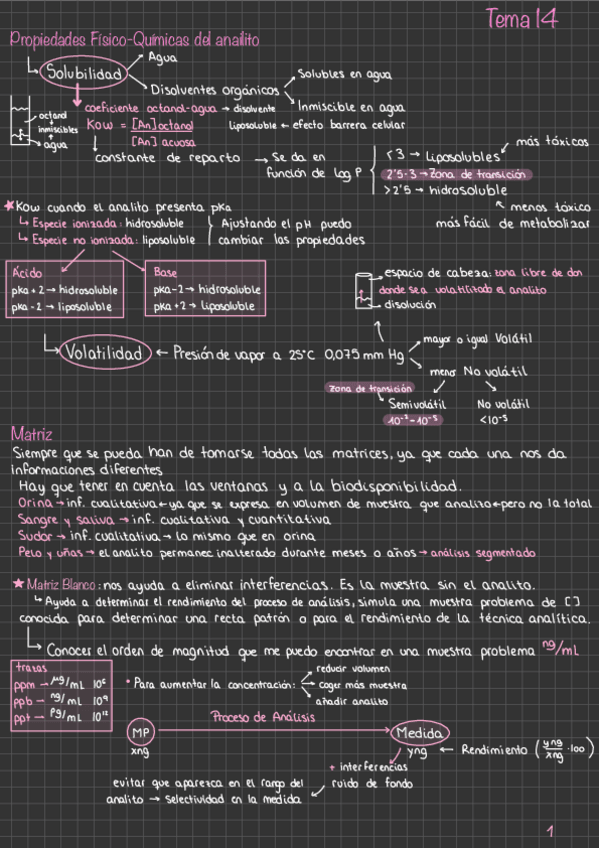 Tema 14
Propiedades Físico-Químicas del analito
Solubilidad
Agua
Disolventes orgánicos
Solubles en agua
Inmiscible en agua
octanol
inmiscibles
agua
coeficiente octanol-agua → disolvente
Kow = [An]octanol
[An] acuosa
liposoluble ← efecto barrera celular
constante de reparto → Se da en función de log P
< 3 → Liposolubles
más tóxicos
2'5-3 → Zona de transición
> 2'5 → hidrosoluble
menos tóxico
más fácil de metabolizar
★ Kow cuando el analito presenta pKa
↳ Especie ionizada: hidrosoluble
↳ Especie no ionizada: liposoluble
Ajustando el pH puedo
cambiar las propiedades
Ácido
pKa+2 → hidrosoluble
pKa-2 → liposoluble
Base
pKa-2 → hidrosoluble
pKa+2 → liposoluble
espacio de cabeza: zona libre de don
donde sea volatilizado el analito
disolución
Volatilidad ← Presión de vapor a 25°C 0,075 mm Hg
mayor o igual Volátil
menor No volátil
Zona de transición
Semivolátil
10⁻²-10⁻⁵
No volátil
<10⁻⁵
Matriz
Siempre que se pueda han de tomarse todas las matrices, ya que cada una nos da
informaciones diferentes
Hay que tener en cuenta las ventanas y a la biodisponibilidad.
Orina → inf. cualitativa ← ya que se expresa en volumen de muestra que analizo ← pero no la total
Sangre y saliva → inf. cualitativa y cuantitativa
Sudor → inf. cualitativa → lo mismo que en orina
Pelo y uñas → el analito permanec inalterado durante meses o años → análisis segmentado
★ Matriz Blanco: nos ayuda a eliminar interferencias. Es la muestra sin el analito.
↳ Ayuda a determinar el rendimiento del proceso de análisis, simula una muestra problema de [ ]
conocida para determinar una recta patrón o para el rendimiento de la técnica analítica.
↳ Conocer el orden de magnitud que me puedo encontrar en una muestra problema ng/mL
trazas
ppm → µg/mL 10⁶
ppb → ng/mL 10⁹
ppt → pg/mL 10¹²
• Para aumentar la concentración:
reducir volumen
coger más muestra
añadir analito
MP
xng
Proceso de Análisis
Medida
yng ← Rendimiento (yng/xng · 100)
+ interferencias
ruido de fondo
evitar que aparezca en el rango del
analito → Selectividad en la medida
1